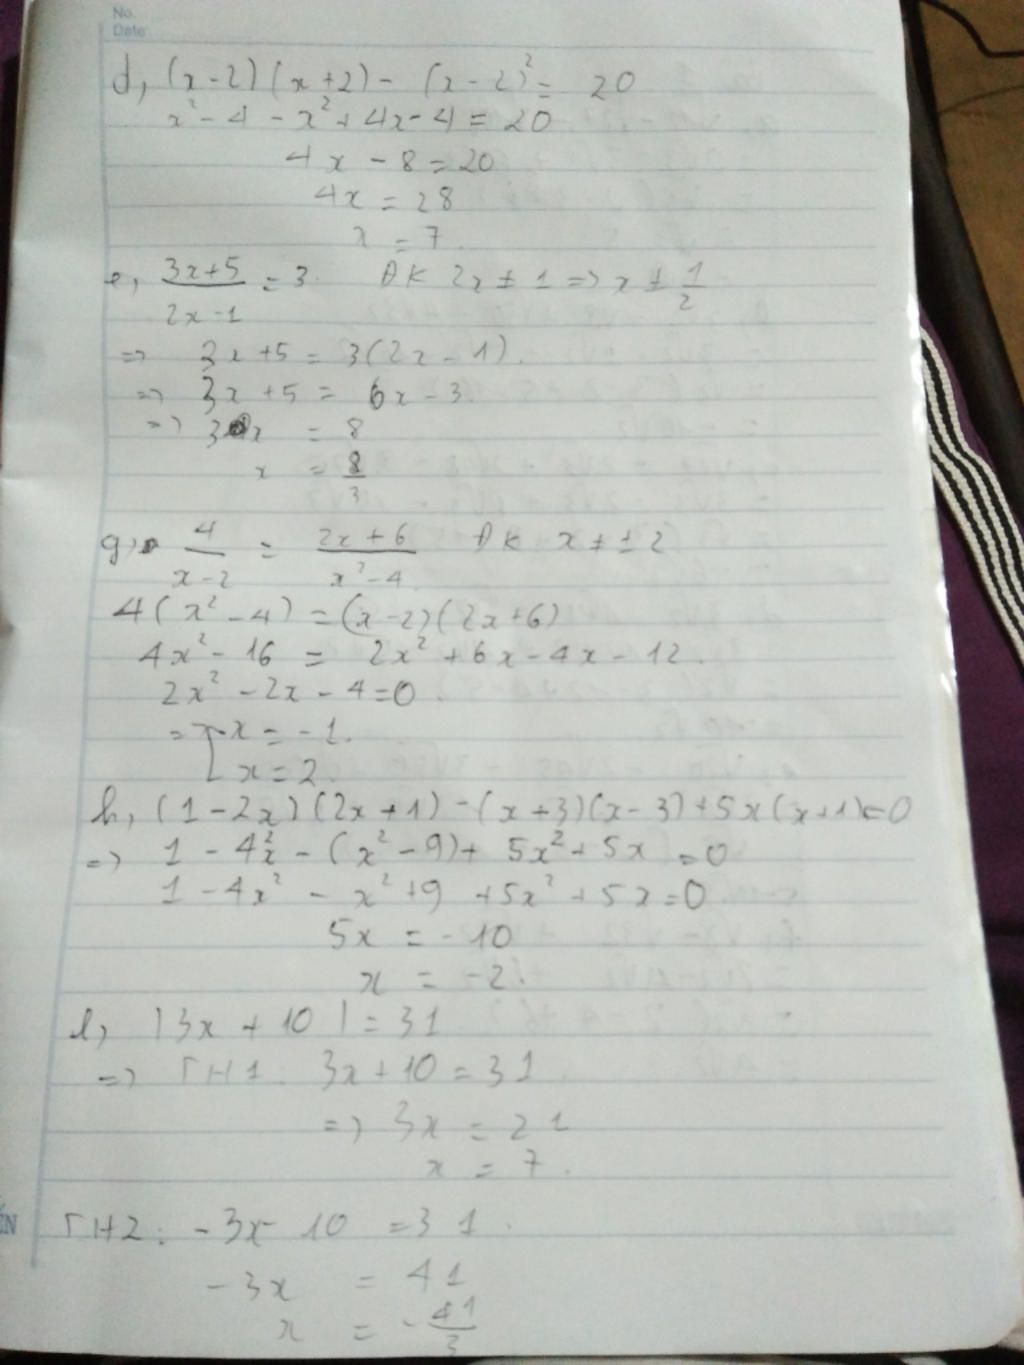 No.
Date
d, (x-2)(x+2) - (x-2)² = 20
x² - 4 - x² + 4x - 4 = 20
4x - 8 = 20
4x = 28
x = 7.
e, \frac{3x+5}{2x-1} = 3. ĐK 2x ≠ 1 => x ≠ \frac{1}{2}
=> 3x + 5 = 3(2x - 1).
=> 3x + 5 = 6x - 3.
=> 3x = 8
x = \frac{8}{3}
g, \frac{4}{x-2} = \frac{2x+6}{x²-4} ĐK x ≠ ±2
4(x² - 4) = (x-2)(2x+6)
4x² - 16 = 2x² + 6x - 4x - 12.
2x² - 2x - 4 = 0.
=> [ x = -1.
x = 2.
h, (1-2x)(2x+1) - (x+3)(x-3) + 5x(x+1) = 0
=> 1 - 4x² - (x² - 9) + 5x² + 5x = 0
1 - 4x² - x² + 9 + 5x² + 5x = 0
5x = -10
x = -2.
l, |3x + 10| = 31
=> TH1: 3x + 10 = 31.
=> 3x = 21
x = 7.
TH2: -3x - 10 = 31.
-3x = 41
x = -\frac{41}{3}